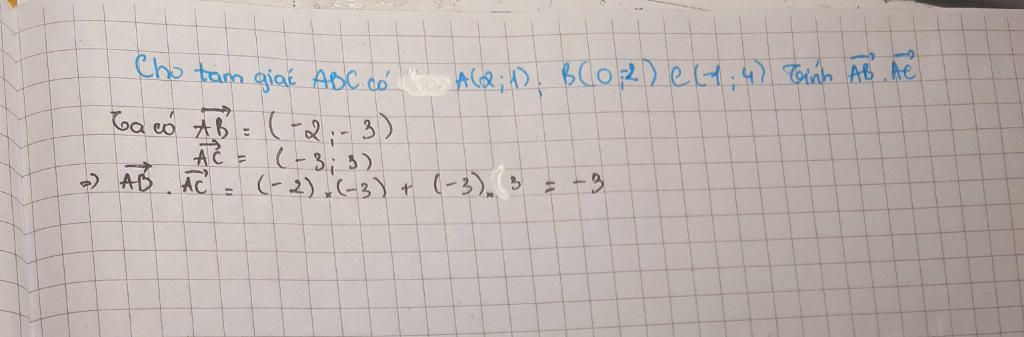 Cho tam giác ABC có A(2;1); B(0;-2) C(-1;4) Tính \overrightarrow{AB}.\overrightarrow{AC}
Ta có \overrightarrow{AB} = (-2;-3)
\overrightarrow{AC} = (-3;3)
=> \overrightarrow{AB}.\overrightarrow{AC} = (-2).(-3) + (-3).3 = -3